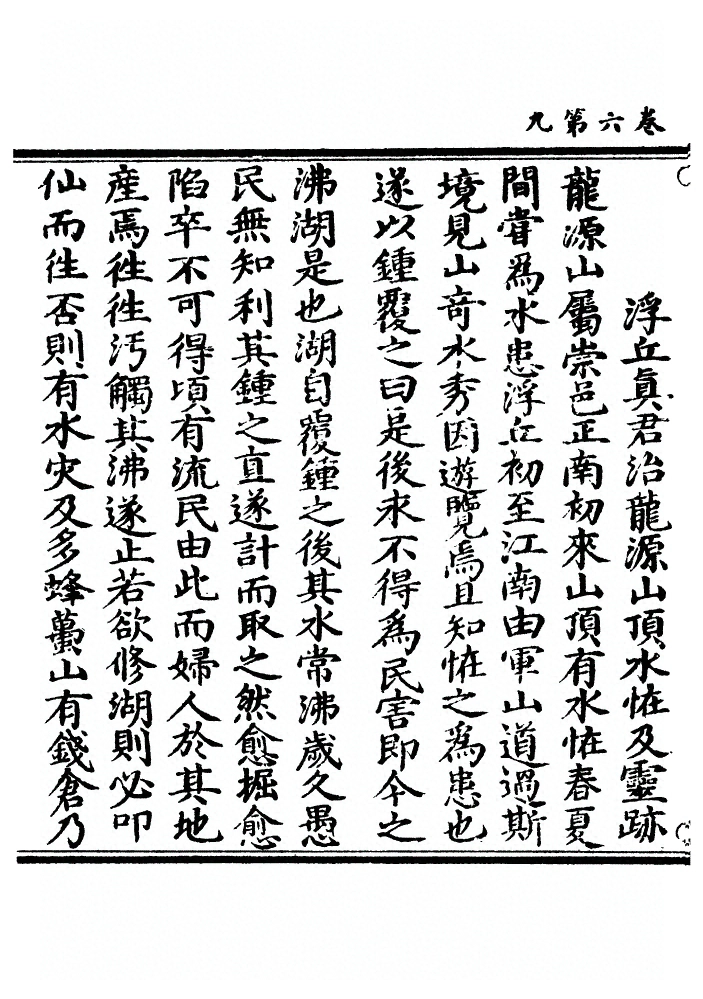 卷六第九
浮丘真君治龍源山頂水恠及靈跡
龍源山屬崇邑正南初來山頂有水恠春夏
間嘗爲水患浮丘初至江南由軍山道過斯
境見山竒水秀因遊覽焉且知恠之爲患也
遂以鍾覆之曰是後永不得爲民害即今之
沸湖是也湖自覆鍾之後其水常沸歲久愚
民無知利其鍾之直遂計而取之然愈掘愈
陷卒不可得頃有流民由此而婦人於其地
産焉徃徃汚觸其沸遂止若欲修湖則必叩
仙而徃否則有水灾及多蜂蠆山有錢倉乃